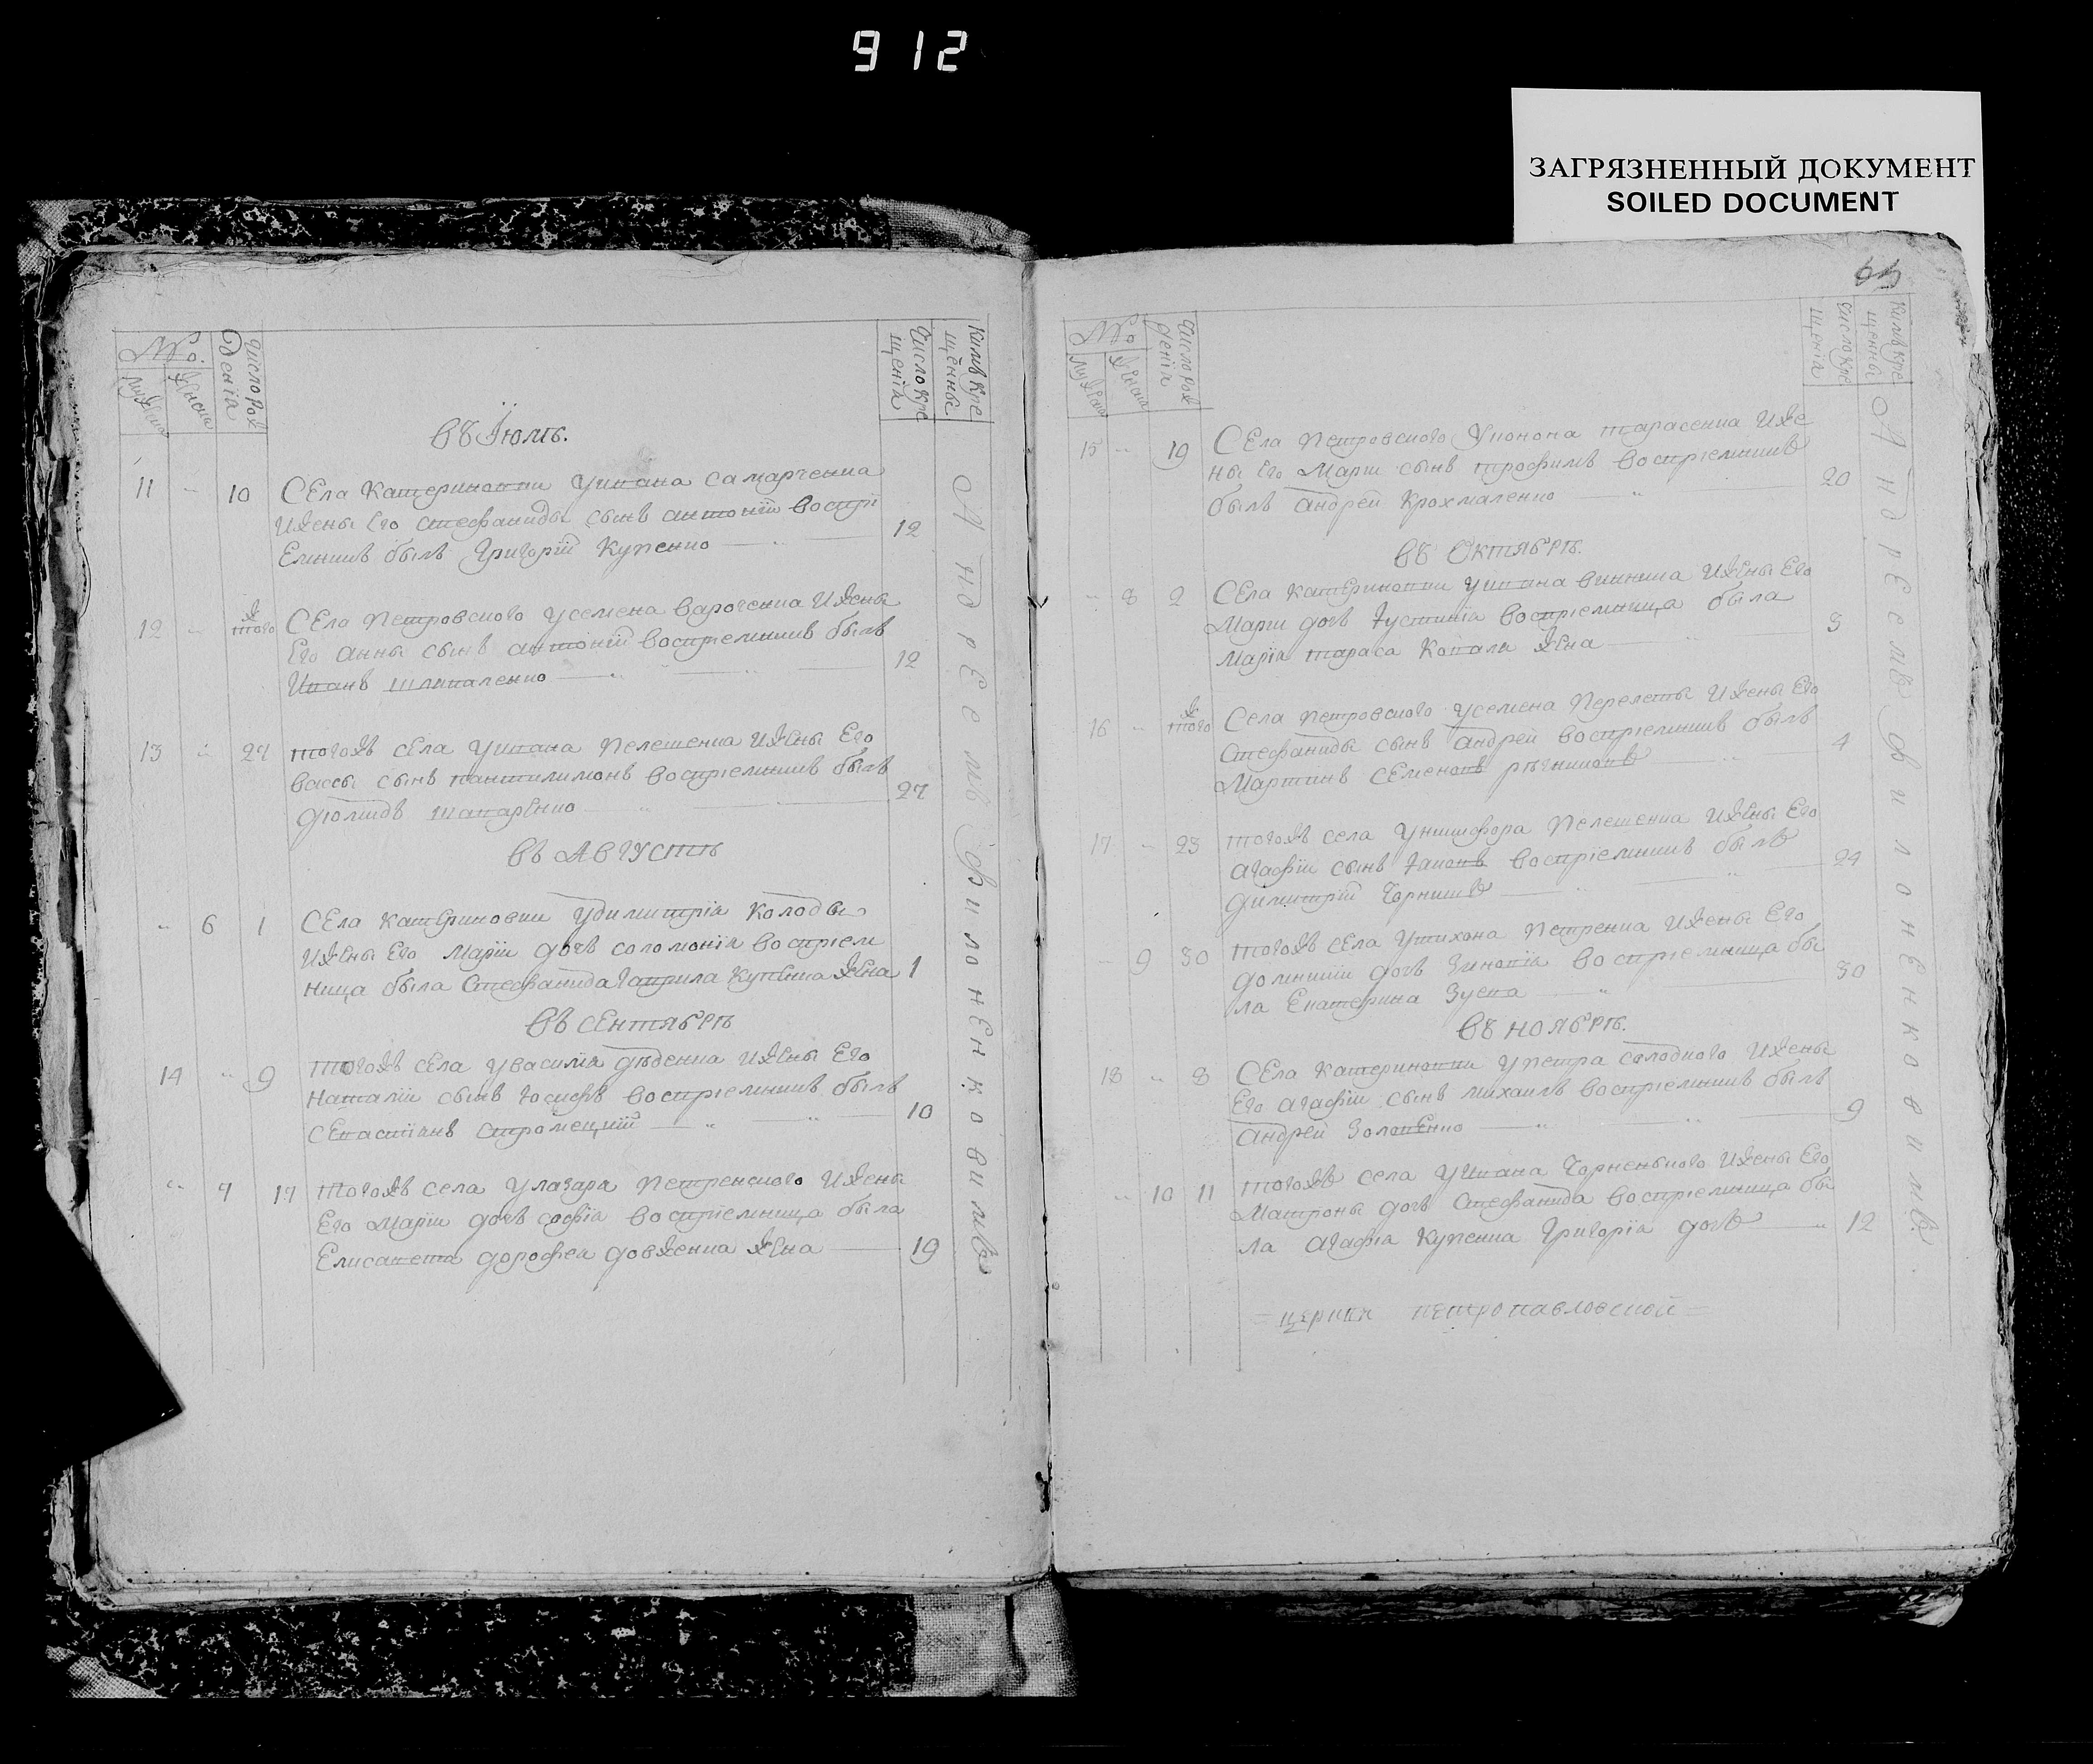 912
ЗАГРЯЗНЕННЫЙ ДОКУМЕНТ
SOILED DOCUMENT
№
мужеска
женска
Число рож
денія
Число кре
щенія
Кимъ кре
щенны
въ Іюлѣ.
11 10 Села Катериновки Уивана самарченка
Ижены Его стефаниды сынъ антоній воспрі
Емникъ былъ Григорій Купенко 12
12 того ж Села Петровского Усемена вароченка Ижены
Его анны сынъ антоній воспріемникъ былъ
Иванъ шлапаленко 12
13 27 тогожъ села Уивана Пелешенка Ижены Его
вассы сынъ пантилимонъ воспріемникъ былъ
шапаренко 27
въ Августѣ
6 1 Села Катериновки Удимитріа Колоды
Ижены Его Маріи дочь соломоніа воспріем
ница была Стефанида Гаврила Купенка жена 1
въ сентябрѣ
14 9 тогожъ села Увасиліа дѣденка Ижены Его
Наталіи сынъ Іосифъ воспріемникъ былъ
севастіанъ 10
7 17 тогожъ села Улазара Петренского Ижены
Его Маріи дочь софіа воспріемница была
Елисавета дорофеа довженка жена 19
Андреемъ Филоненковимъ
№
мужеска
женска
Число рож
денія
Число кре
щенія
Кимъ кре
щенны
15 19 Села Петровского Уконона тарасенка Иже
ны Его Маріи сынъ трофимъ воспріемникъ
былъ андрей Крохмаленко 20
въ Октябрѣ.
8 2 Села Катериновки Уивана винника Ижены Его
Маріи дочь Іустиніа воспріемница была
Маріа тараса Ковала жена 3
16 того ж Села Петровского Усемена Перелеты Ижены Его
Стефаниды сынъ андрей воспріемникъ былъ
Мартинъ Семеновъ 4
17 23 тогожъ села Уникифора Пелешенка Ижены Его
агафіи сынъ Іаковъ воспріемникъ былъ
димитрій Чорникъ 24
9 30 тогожъ села Утихона Петренка Ижены Его
домникіи дочь Зиновіа воспріемница бы
ла Екатерина Зуева 30
въ ноябрѣ.
18 8 Села Катериновки Упетра солодкого Ижены
Его агафіи сынъ михаилъ воспріемникъ былъ
андрей Золотенко 9
10 11 тогожъ села Уивана Чорненького Ижены Его
Матроны дочь Стефанида воспріемница бы
ла агафіа Купенка Григоріа дочь 12
Андреемъ Филоненковимъ.
церкви петропавловской